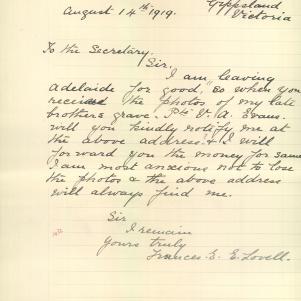 Gippsland
August 14th 1919. Victoria
To the Secretary.
Sir,
I am leaving
Adelaide for good, so when you
receive the photos of my late
brothers grave. Pte V. A. Evans.
will you kindly notify me at
the above address & I will
forward you the money for same
I am most anxious not to lose
the photos & the above address
will always find me.
Sir
I remain
Yours truly
Frances. E. E. Lovell.